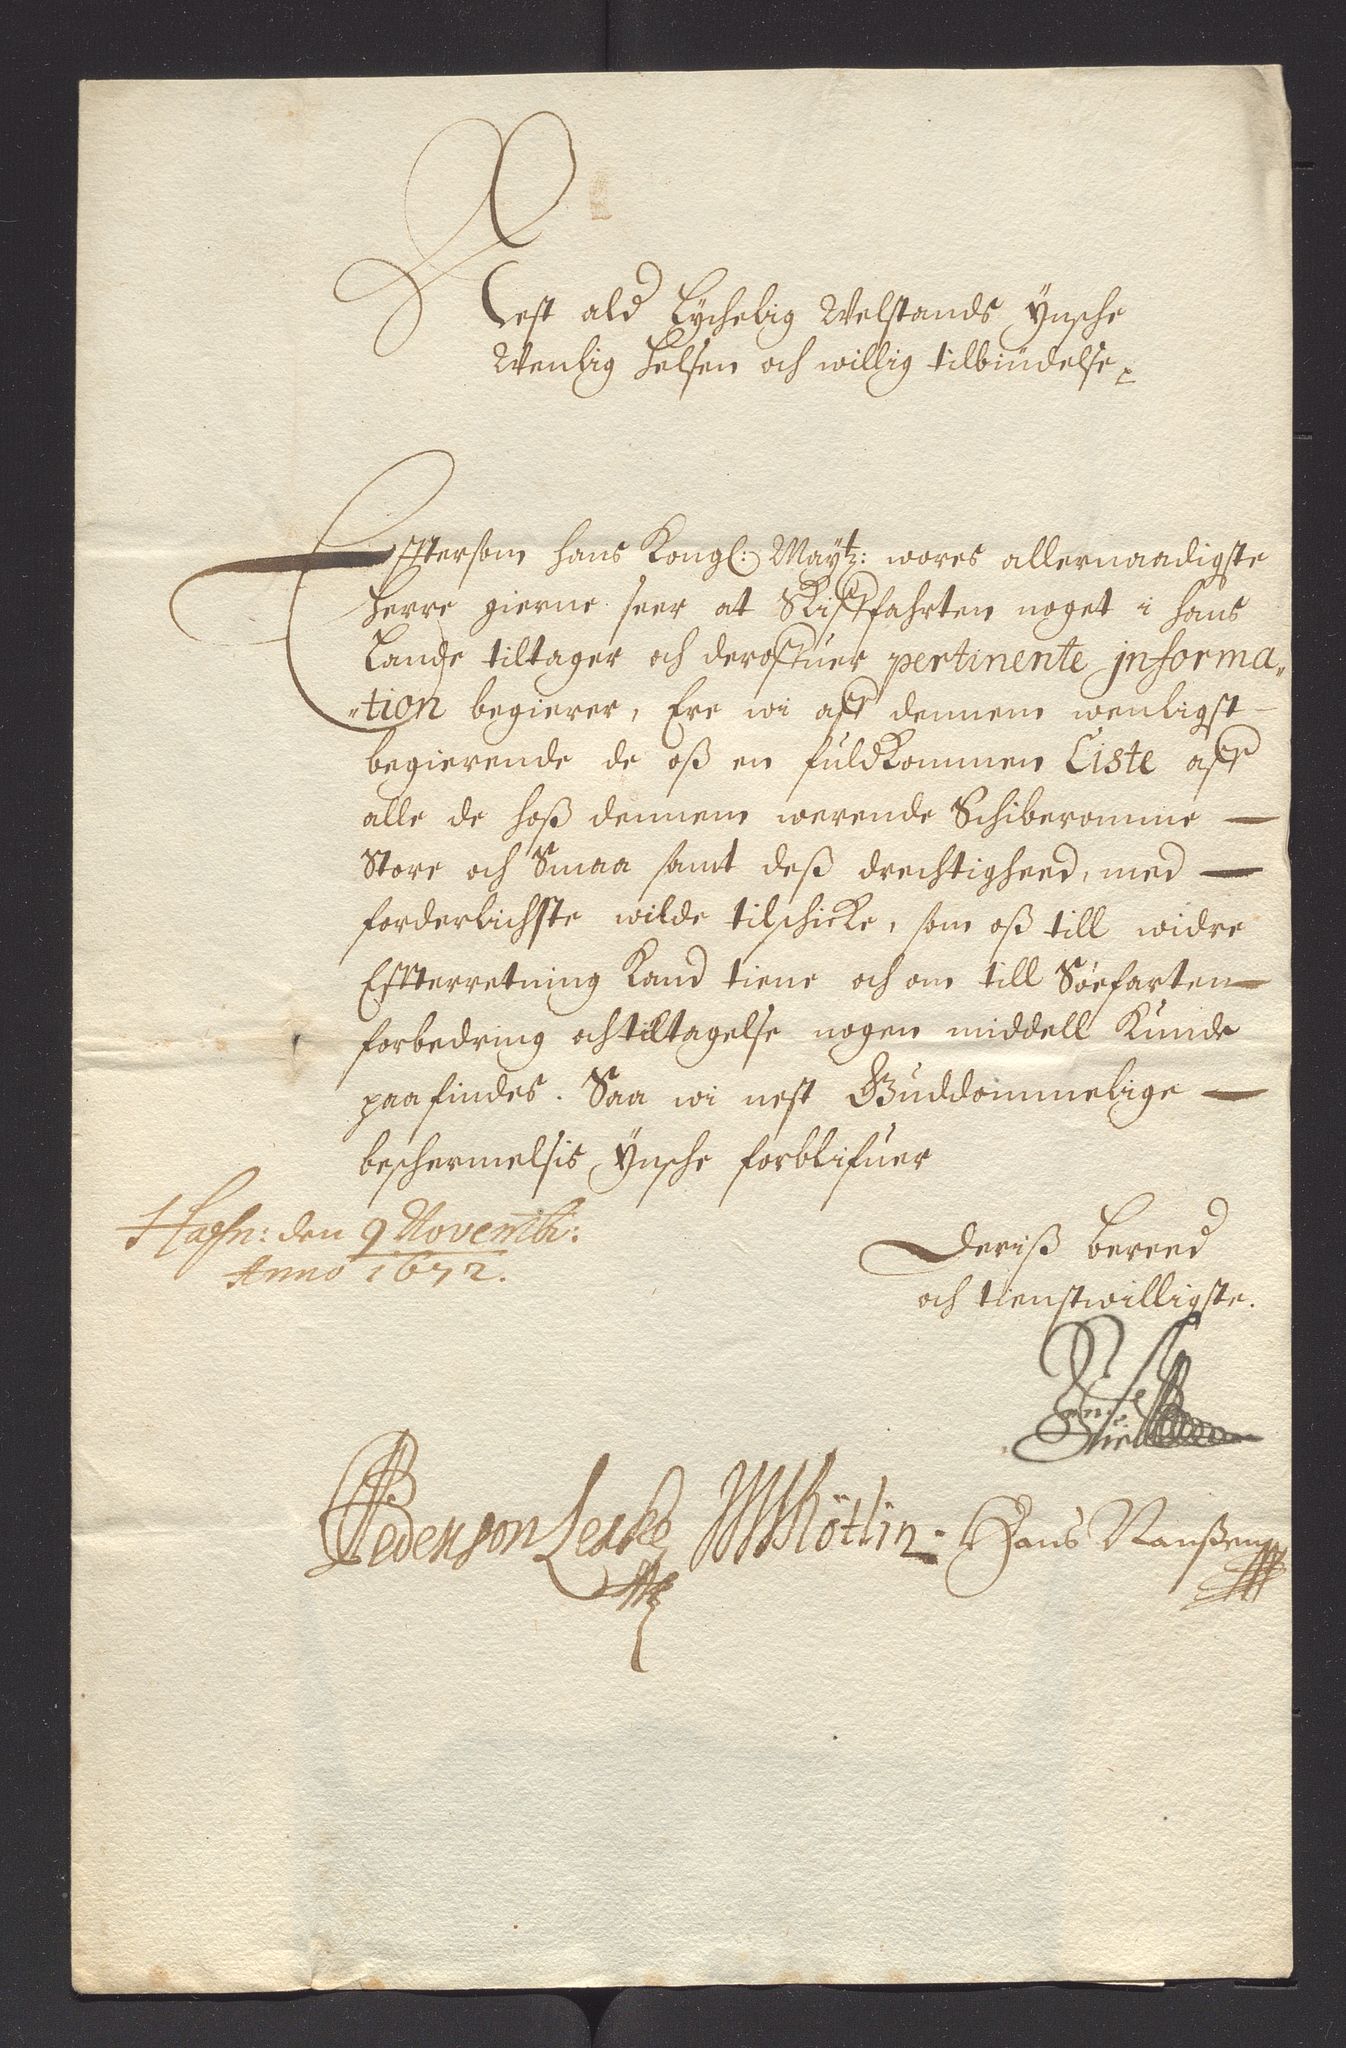 Nest ald Lychelig Welstands Ynsche
Wenlig Helsen och willig tilbiudelse
Effttersom hans Kongl: Maytz: wores allernaadigste
Herre gierne seer at Skifffahrten noget i hans
Lande tiltager och deroffuer pertinente jnforma„
„tion begierer, Ere wi aff dennem wenligst
begierende de oß en fuldkommen Liste aff
alle de hoß dennem werende Schiberomme
Store och Smaa samt deß drechtigheed, med
forderlichste wilde tilschicke, som oß till widre
Effterretning kand tiene och om till Söefarten
forbedring och tiltagelse nogen middell kunde
paafindes. Saa wi nest Guddommelige
beschermelsis Ynsche forblifuer
Hafn: den 9 Novembr:
Anno 1672.
Deriß bereed
och tienstwilligste.
Pedersøn Lerke Mötlin Hans Nanßen